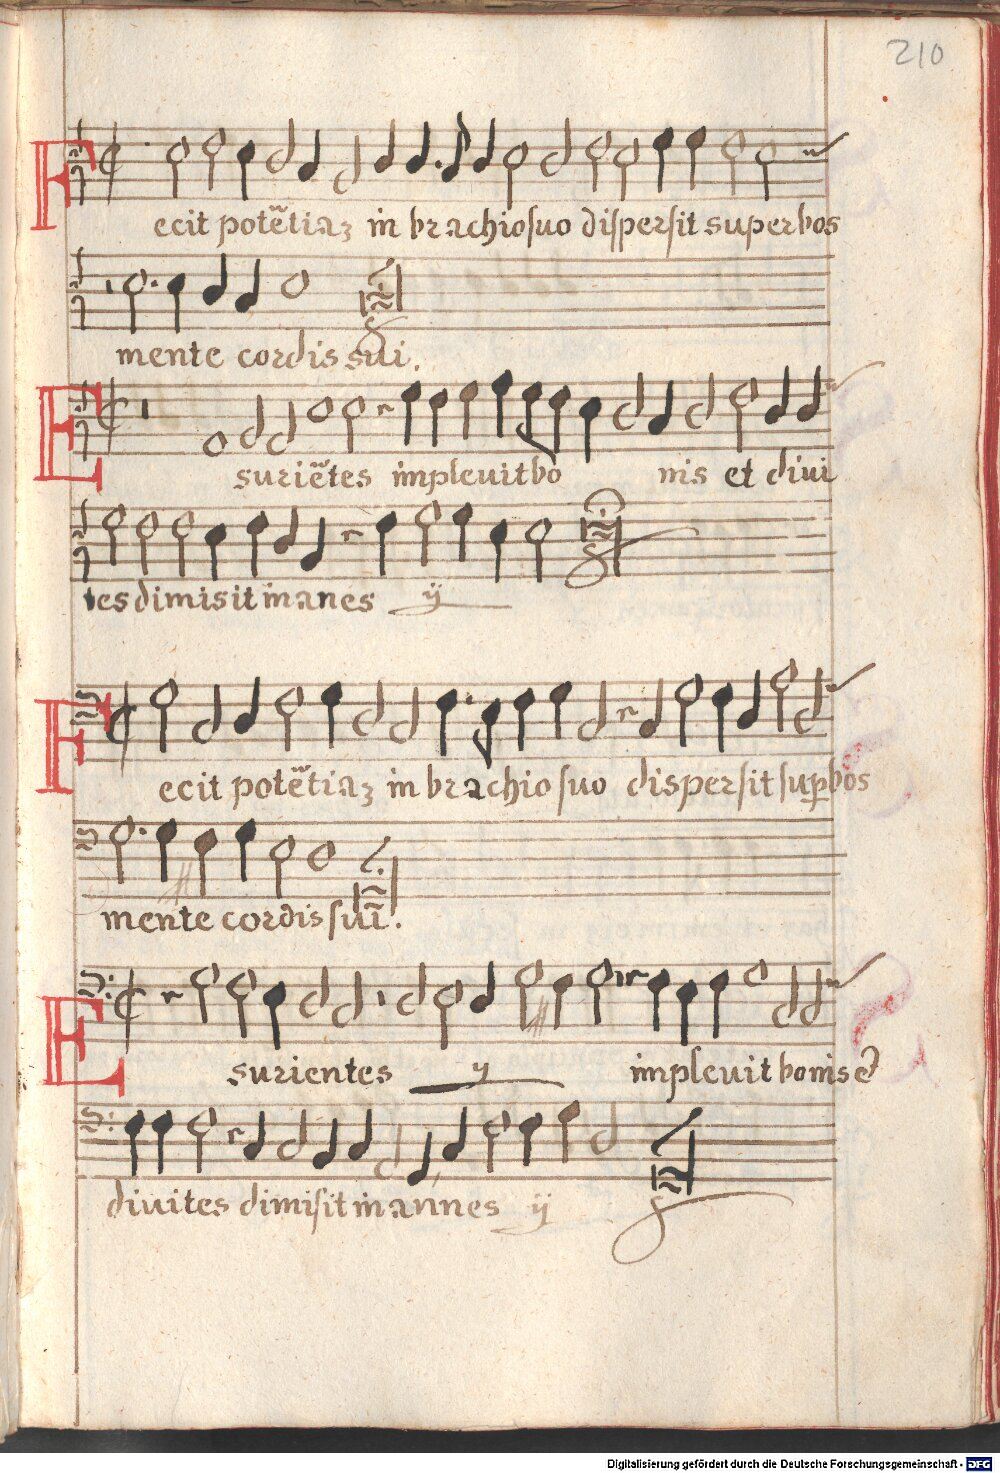 210
Fecit potẽtiaʒ in brachio ſuo diſperſit superbos
mente cordis sui.
Esuriẽtes implevit bo nis et divi
tes dimisit inanes ij
Fecit potẽtiaʒ in brachio ſuo disperſit sup̱bos
mente cordis ſui.
Esurientes ij implevit bonis et
divites dimiſit inannes ij
Digitalisierung gefördert durch die Deutsche Forschungsgemeinschaft - DFG